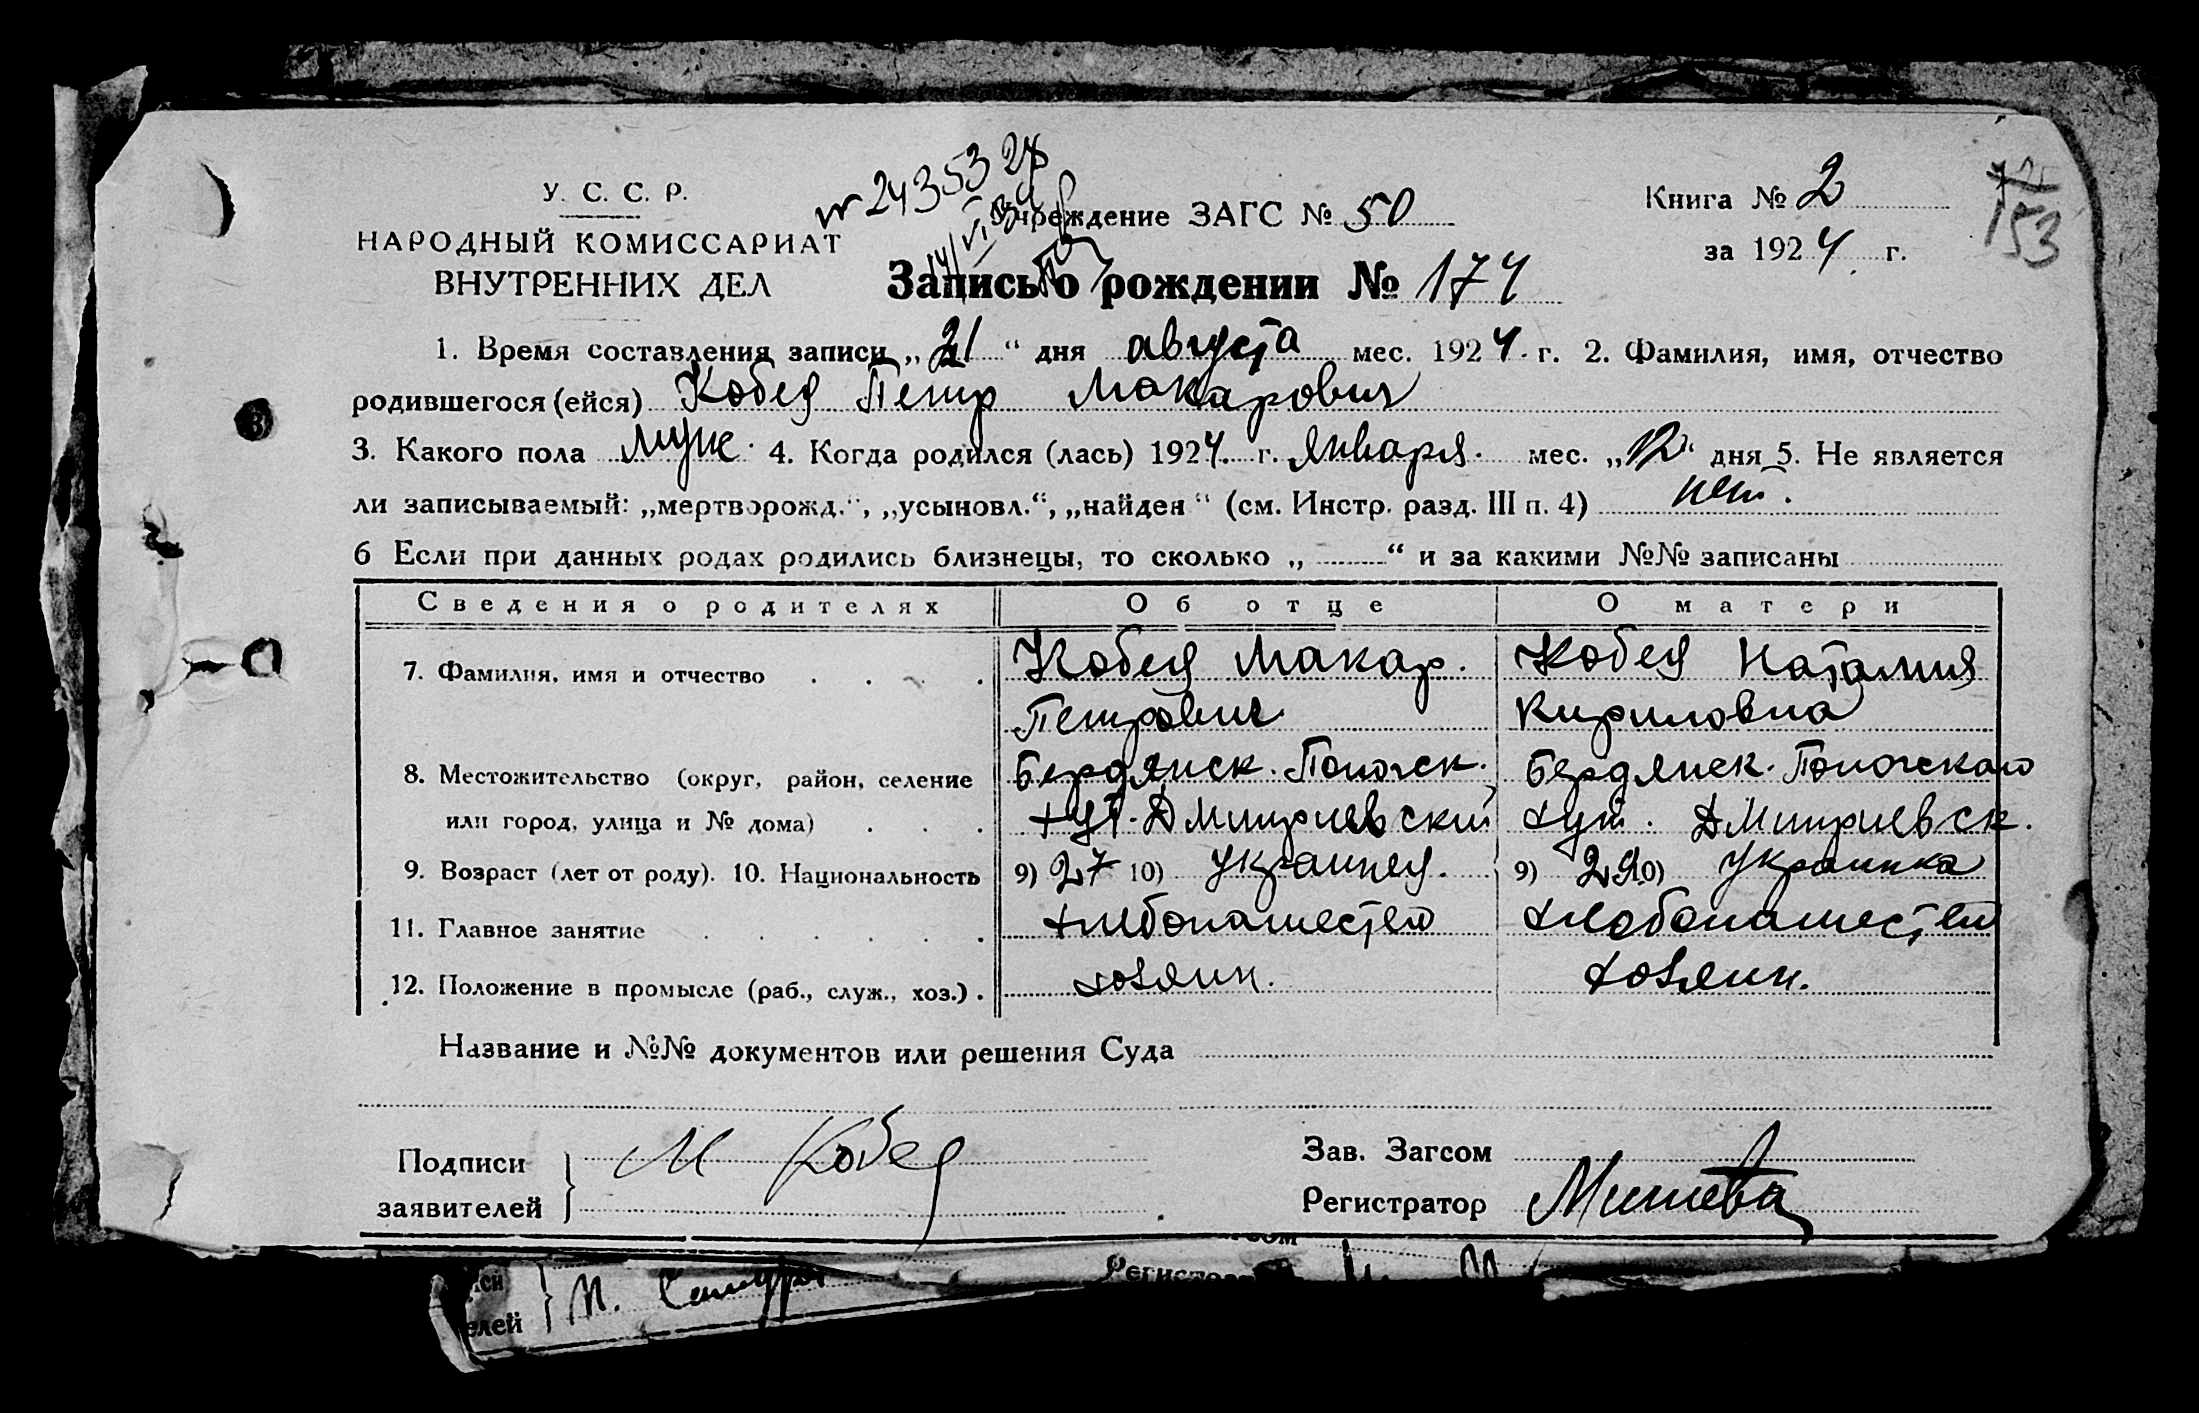 У. С. С. Р.
НАРОДНЫЙ КОМИССАРИАТ
ВНУТРЕННИХ ДЕЛ
№ 24353
Учреждение ЗАГС № 50
Книга № 2
за 1924 г.
153
Запись о рождении № 174
1. Время составления записи „21“ дня августа мес. 1924 г. 2. Фамилия, имя, отчество
родившегося (ейся) Кобец Петр Макарович
3. Какого пола муж. 4. Когда родился (лась) 1924 г. января мес. „12“ дня 5. Не является
ли записываемый: „мертворожд.“, „усыновл.“, „найден“ (см. Инстр. разд. III п. 4) нет.
6 Если при данных родах родились близнецы, то сколько „ “ и за какими №№ записаны
Сведения о родителях Об отце О матери
7. Фамилия, имя и отчество Кобец Макар. Кобец Наталия
Петрович Кириловна
8. Местожительство (округ, район, селение Бердянск. Пологск. Бердянск. Пологскаго
или город, улица и № дома) хут. Дмитриевский хут. Дмитриевск.
9. Возраст (лет от роду). 10. Национальность 9) 27 10) Украинец. 9) 29 10) Украинка
11. Главное занятие хлебопашеством хлебопашеством
12. Положение в промысле (раб., служ., хоз.). хозяин. хозяин.
Название и №№ документов или решения Суда
Подписи
заявителей
М Кобец
Зав. Загсом
Регистратор